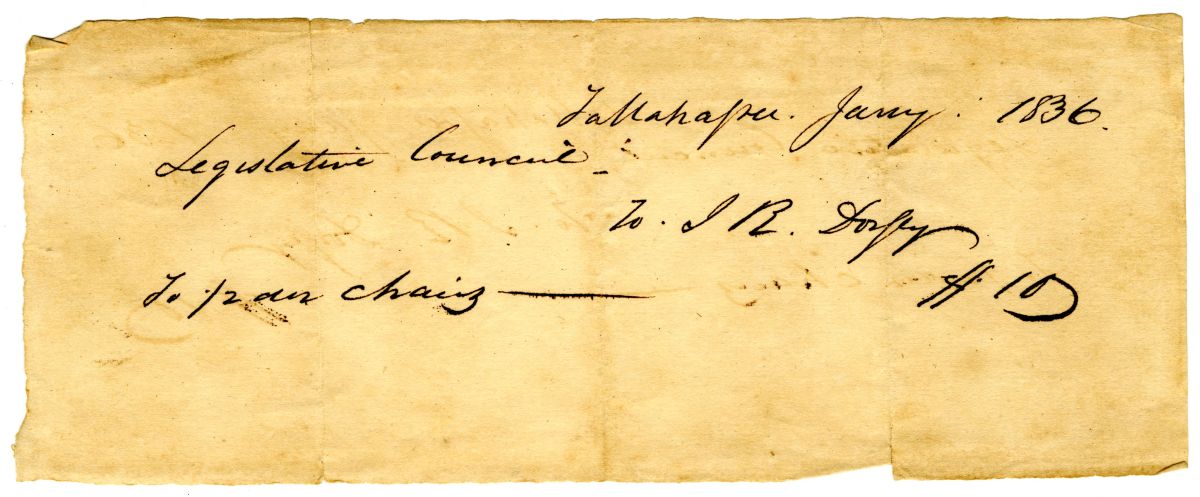 Tallahassee. Jany. 1836.
Legislative Council
To. J R.
To 1/2 doz chairs — $10